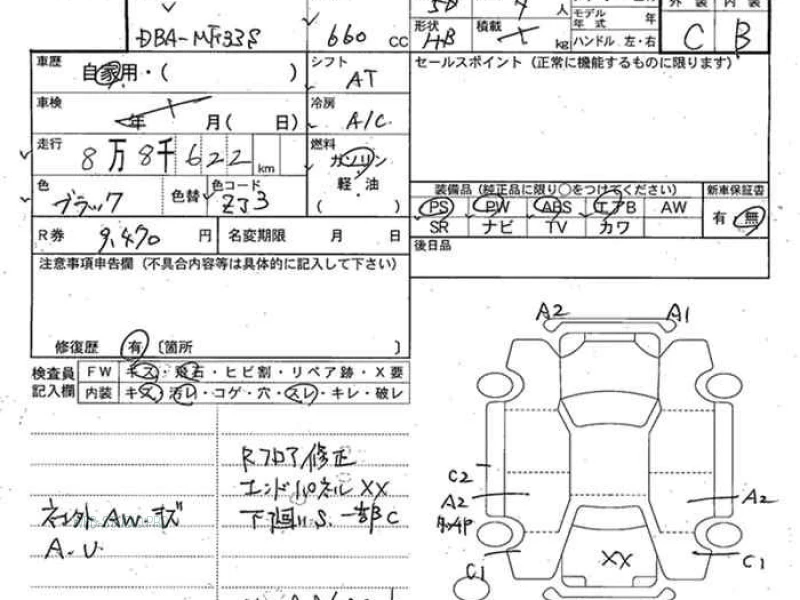 DBA-MF33S
660 CC
人
形状 4B
積載 kg
モデル年式 年
ハンドル 左・右
外装 内装
C B
車歴
自家用・( )
シフト
AT
セールスポイント (正常に機能するものに限ります)
車検
年 月( 日)
冷房
A/C
走行
8万8千622 km
燃料
ガソリン
軽・油
( )
色
ブラック
色替
色コード
ZJ3
装備品 (純正品に限り○をつけてください)
新車保証書
PS PW ABS エアB AW
有・無
SR ナビ TV カワ
R券 9,470 円
名変期限 月 日
後日品
注意事項申告欄 (不具合内容等は具体的に記入して下さい)
修復歴 有 〔箇所 〕
検査員記入欄
FW キズ・飛石・ヒビ割・リペア跡・X要
内装 キズ・汚レ・コゲ・穴・スレ・キレ・破レ
Rフロア修正
エンドパネルXX
下廻りS. 一部C
AW キズ
A.U
A2 A1
C2
A2
A2
XX
C1
C1